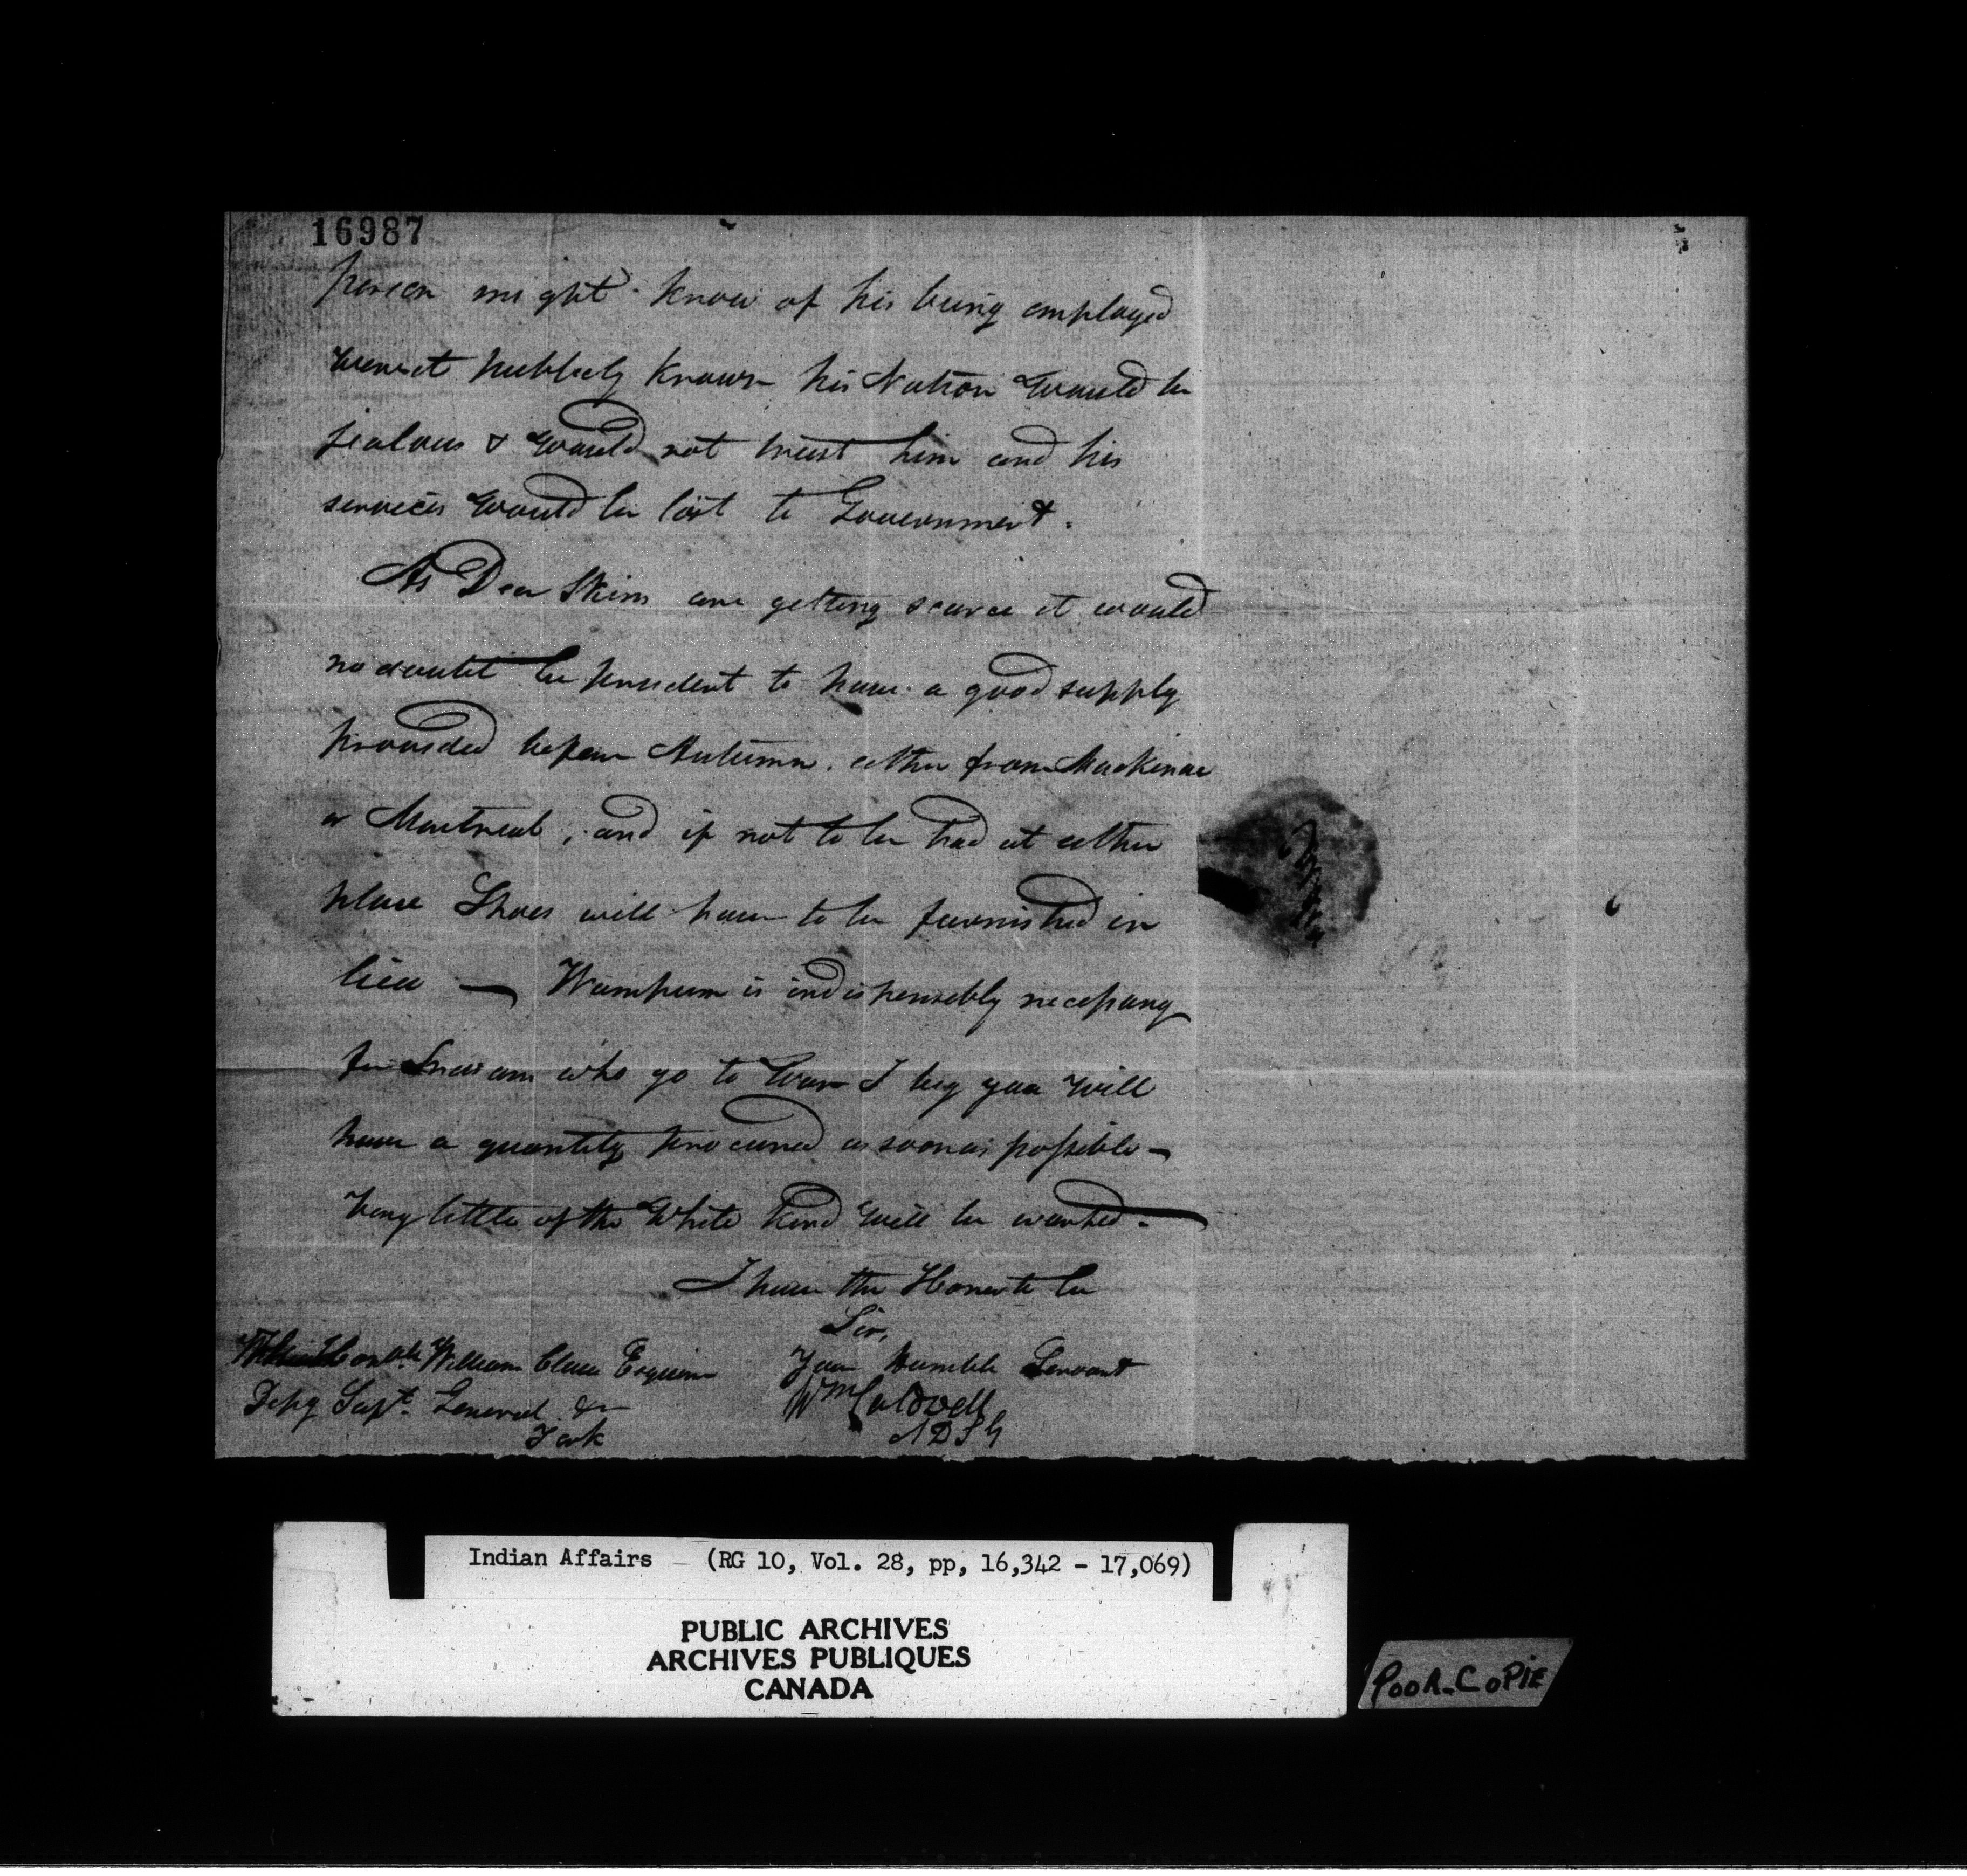 16987
person might know of his being employed
were it publicly known his Nation Would be
jealous & Would not trust him and his
services Would be lost to Government.
As Deer Skins are getting scarce it would
no doubt be prudent to have a good supply
provided before Autumn. either from Mackinac
or Montreal, and if not to be had at either
place Shoes will have to be furnished in
lieu — Wampum is indispensebly necessary
for Indians who go to War I beg you Will
have a quantity procured as soon as possible —
Very little of the White kind Will be wanted —
I have the Honor to be
Sir,
Your Humble Servant
Wm Caldwell
A D S G
Honble. William Claus Esquire
Depy Supt. General &c
York
Indian Affairs — (RG 10, Vol. 28, pp, 16,342 - 17,069)
PUBLIC ARCHIVES
ARCHIVES PUBLIQUES
CANADA
POOR-COPIE